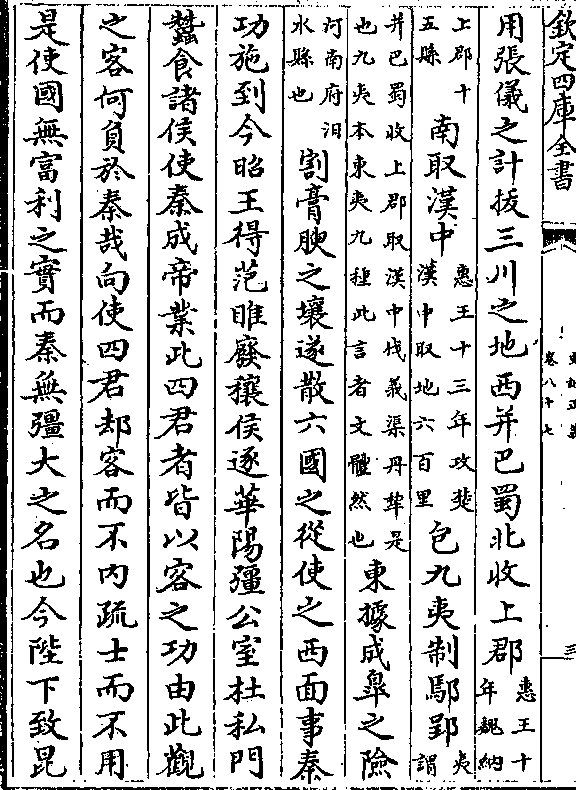 欽定四庫全書
卷八十七
三
用張儀之計拔三川之地西并巴蜀北收上郡惠王十年魏納
上郡十五縣南取漢中惠王十三年攻楚漢中取地六百里包九夷制鄢郢夷謂
并巴蜀收上郡取漢中伐義渠丹犂是也九夷本東夷九種此言者文體然也東據成臯之險
河南府汜水縣也割膏腴之壤遂散六國之從使之西面事秦
功施到今昭王得范睢廢穰侯逐華陽彊公室杜私門
蠶食諸侯使秦成帝業此四君者皆以客之功由此觀
之客何負於秦哉向使四君却客而不内疏士而不用
是使國無富利之實而秦無彊大之名也今陛下致昆